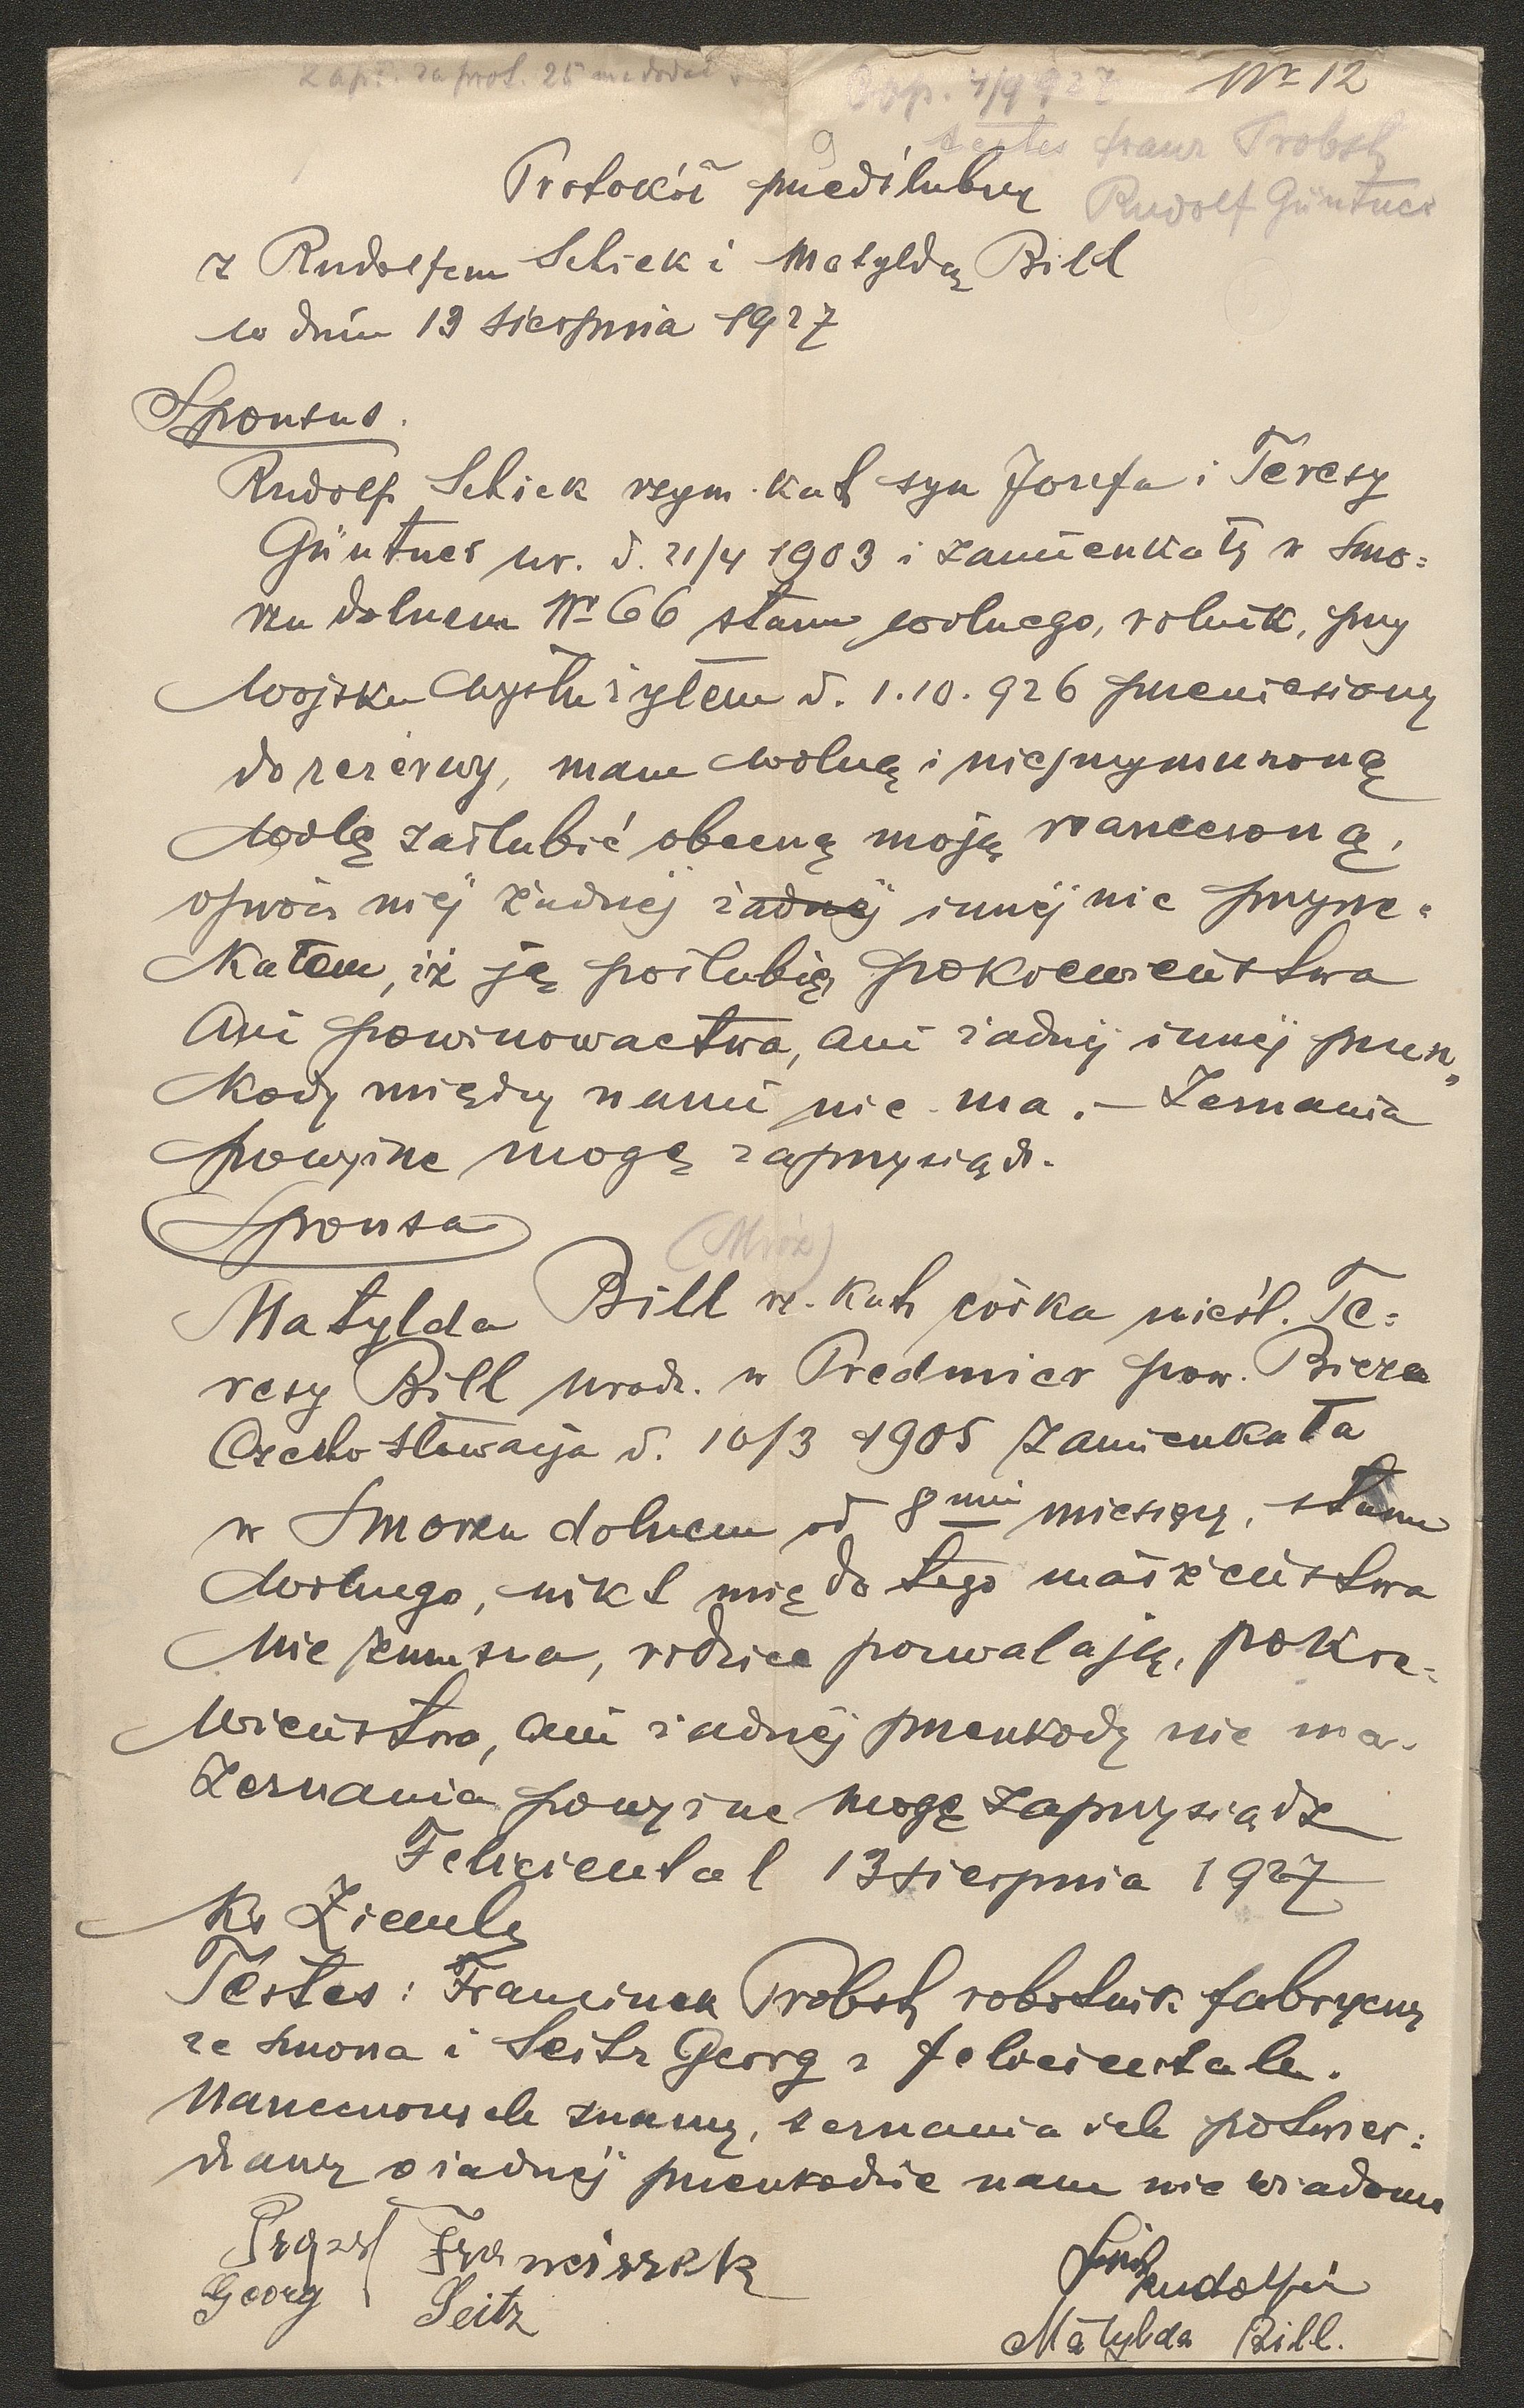 Zapł. za prot. 25 nie dodał
Cop. 4/9 927 Nr 12
testes Franz Probst
Rudolf Güntner
9
Protokół przedślubny
z Rudolfem Schick i Matyldą Bill
w dniu 13 sierpnia 1927
Sponsus.
Rudolf Schick rzym. kat syn Józefa i Teresy
Güntner ur. d. 21/4 1903 i zamieszkały w Smo=
rzu dolnem No 66 stanu wolnego, rolnik, przy
wojsku wysłużyłem d. 1.10.926 przeniesiony
do rezerwy, mam wolną i nieprzymuszoną
wolę zaślubić obecną moją narzeczoną,
oprócz niej żadnej żadnej innej nie przyrze=
kałem, iż ją poślubię, pokrewieństwa
ani powinowactwa, ani żadnej innej przesz„
kody między nami nie ma. – Zeznania
powyższe mogę zaprzysiądz.
Sponsa
(Mróz)
Matylda Bill rz. kat córka nieśl. Te=
resy Bill urodz. w Predmier pow. Bicza
Czechosłowacja d. 10/3 1905 zamieszkała
w Smorzu dolnem od 8miu miesięcy, stanu
wolnego, nikt mię do tego małżeństwa
nie zmusza, rodzice pozwalają, pokre=
wieństwa, ani żadnej przeszkody nie ma.
Zeznania powyższe mogę zaprzysiądz
Feliciental 13 sierpnia 1927
Ks Ziemby
Testes: Franciszek Probst robotnik fabryczny
ze Smorza i Seitz Georg z Felicientalu.
Narzeczonych znamy, zeznania ich potwier=
dzamy o żadnej przeszkodzie nam nie wiadomo
Franciszek
Georg Seitz
Rudolf
Matylda Bill.